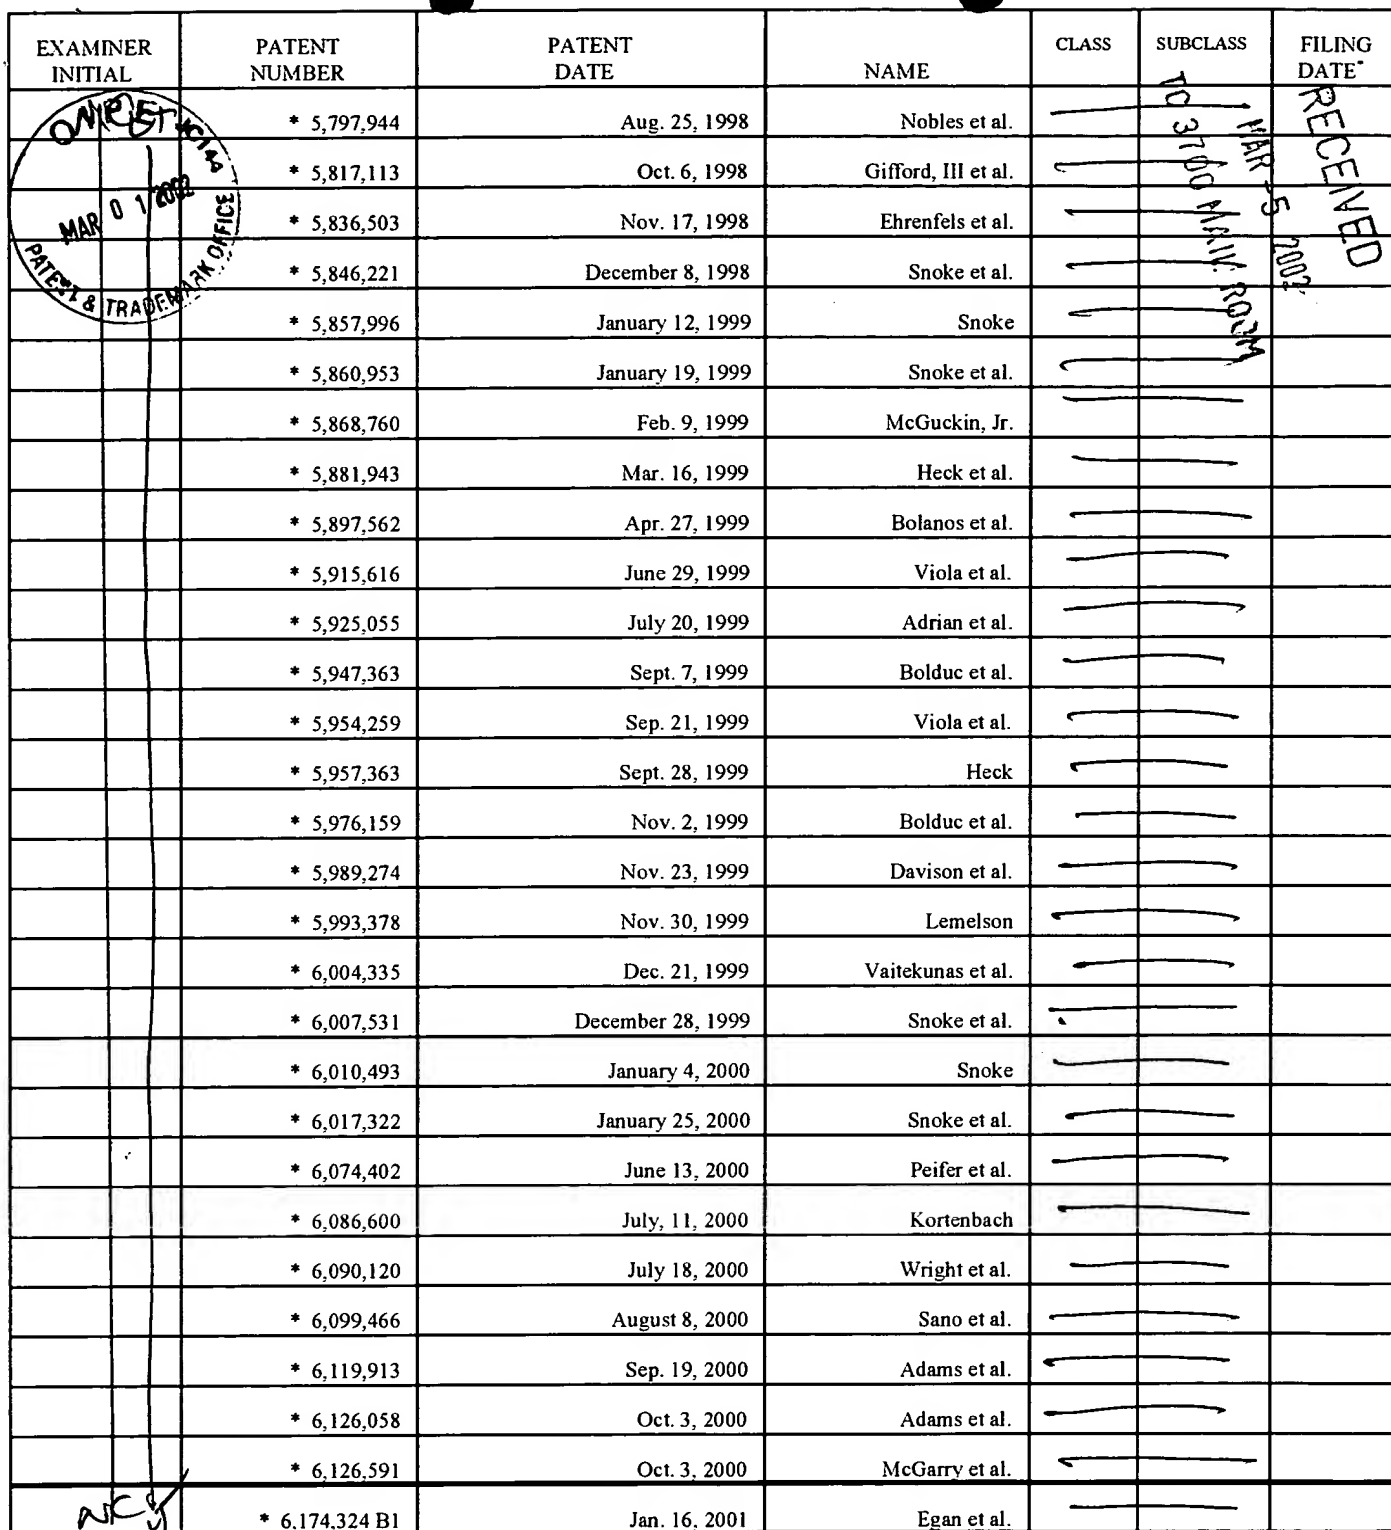 EXAMINER INITIAL PATENT NUMBER PATENT DATE NAME CLASS SUBCLASS FILING DATE*
* 5,797,944 Aug. 25, 1998 Nobles et al.
* 5,817,113 Oct. 6, 1998 Gifford, III et al.
* 5,836,503 Nov. 17, 1998 Ehrenfels et al.
* 5,846,221 December 8, 1998 Snoke et al.
* 5,857,996 January 12, 1999 Snoke
* 5,860,953 January 19, 1999 Snoke et al.
* 5,868,760 Feb. 9, 1999 McGuckin, Jr.
* 5,881,943 Mar. 16, 1999 Heck et al.
* 5,897,562 Apr. 27, 1999 Bolanos et al.
* 5,915,616 June 29, 1999 Viola et al.
* 5,925,055 July 20, 1999 Adrian et al.
* 5,947,363 Sept. 7, 1999 Bolduc et al.
* 5,954,259 Sep. 21, 1999 Viola et al.
* 5,957,363 Sept. 28, 1999 Heck
* 5,976,159 Nov. 2, 1999 Bolduc et al.
* 5,989,274 Nov. 23, 1999 Davison et al.
* 5,993,378 Nov. 30, 1999 Lemelson
* 6,004,335 Dec. 21, 1999 Vaitekunas et al.
* 6,007,531 December 28, 1999 Snoke et al.
* 6,010,493 January 4, 2000 Snoke
* 6,017,322 January 25, 2000 Snoke et al.
* 6,074,402 June 13, 2000 Peifer et al.
* 6,086,600 July, 11, 2000 Kortenbach
* 6,090,120 July 18, 2000 Wright et al.
* 6,099,466 August 8, 2000 Sano et al.
* 6,119,913 Sep. 19, 2000 Adams et al.
* 6,126,058 Oct. 3, 2000 Adams et al.
* 6,126,591 Oct. 3, 2000 McGarry et al.
* 6,174,324 B1 Jan. 16, 2001 Egan et al.
MAR 0 1 2002
PATENT & TRADEMARK OFFICE
RECEIVED
MAR - 5 2002
TC 3700 MAIL ROOM